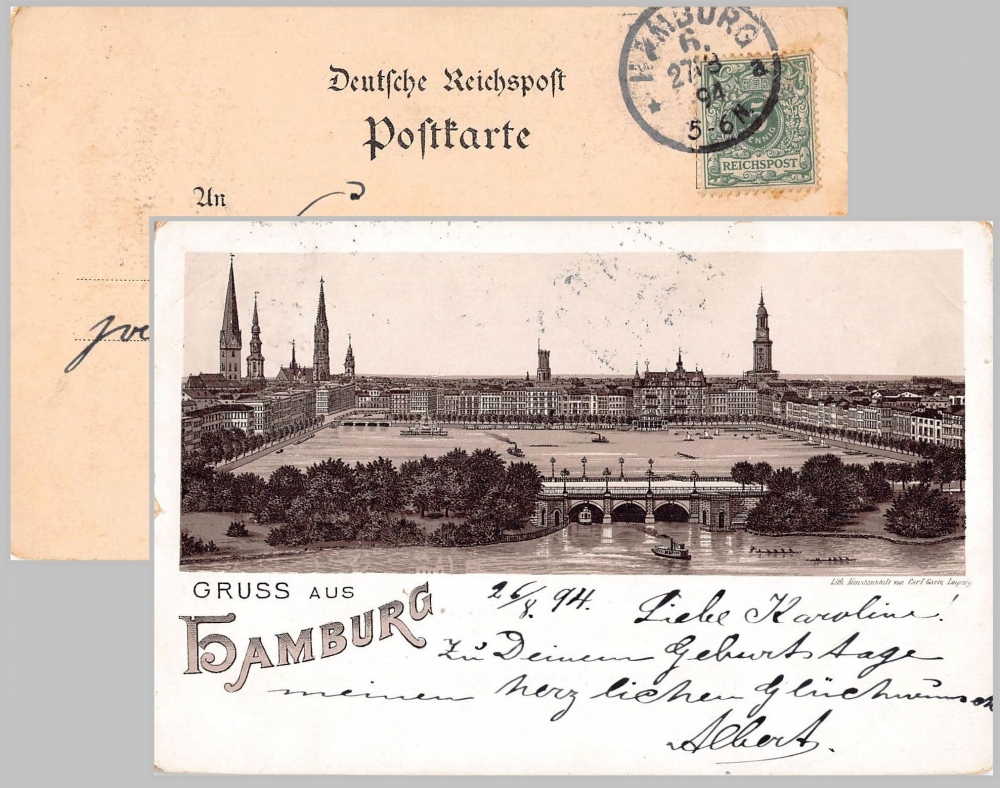 Deutsche Reichspost
Postkarte
An
HAMBURG
6.
27/8 a
94
5-6 N.
5
PFENNIG
REICHSPOST
Lith. Kunstanstalt von Carl Garte Leipzig
GRUSS AUS
HAMBURG
26/8. 94.
Liebe Karoline!
Zu Deinem Geburtstage
meinen herzlichen Glückwunsch
Albert.